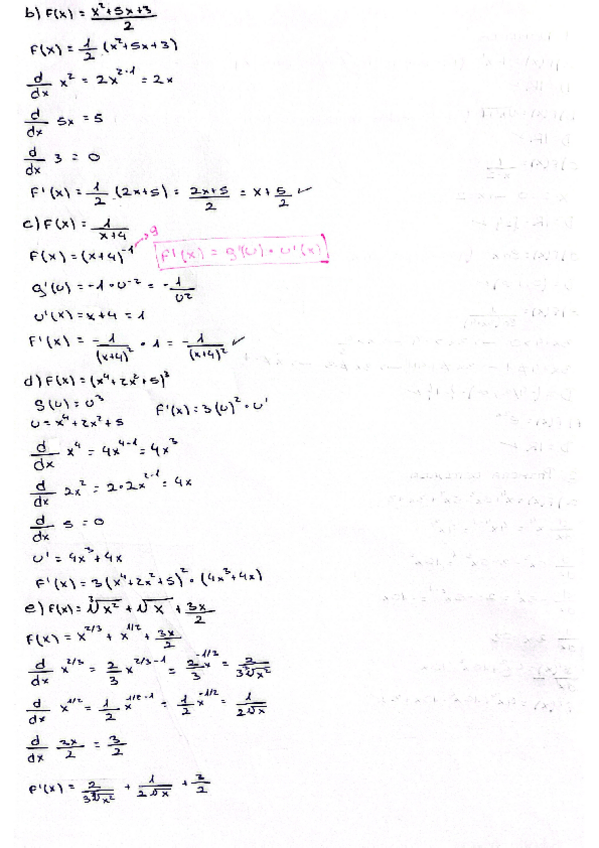 b) F(x) = x²+5x+3/2
F(x) = 1/2 (x²+5x+3)
d/dx x² = 2x²⁻¹ = 2x
d/dx 5x = 5
d/dx 3 = 0
F'(x) = 1/2 · (2x+5) = 2x+5/2 = x+5/2 ✓
c) F(x) = 1/x+4
F(x) = (x+4)⁻¹ → g F'(x) = g'(u) · u'(x)
g'(u) = -1 · u⁻² = -1/u²
u'(x) = x+4 = 1
F'(x) = -1/(x+4)² · 1 = -1/(x+4)² ✓
d) F(x) = (x⁴+2x²+5)³
g(u) = u³ F'(x) = 3(u)² · u'
u = x⁴+2x²+5
d/dx x⁴ = 4x⁴⁻¹ = 4x³
d/dx 2x² = 2·2x²⁻¹ = 4x
d/dx 5 = 0
u' = 4x³+4x
F'(x) = 3(x⁴+2x²+5)² · (4x³+4x)
e) F(x) = ³√x² + √x + 3x/2
F(x) = x^2/3 + x^1/2 + 3x/2
d/dx x^2/3 = 2/3 x^2/3-1 = 2/3 x^-1/3 = 2/3³√x²
d/dx x^1/2 = 1/2 x^1/2-1 = 1/2 x^-1/2 = 1/2√x
d/dx 3x/2 = 3/2
F'(x) = 2/3³√x² + 1/2√x + 3/2